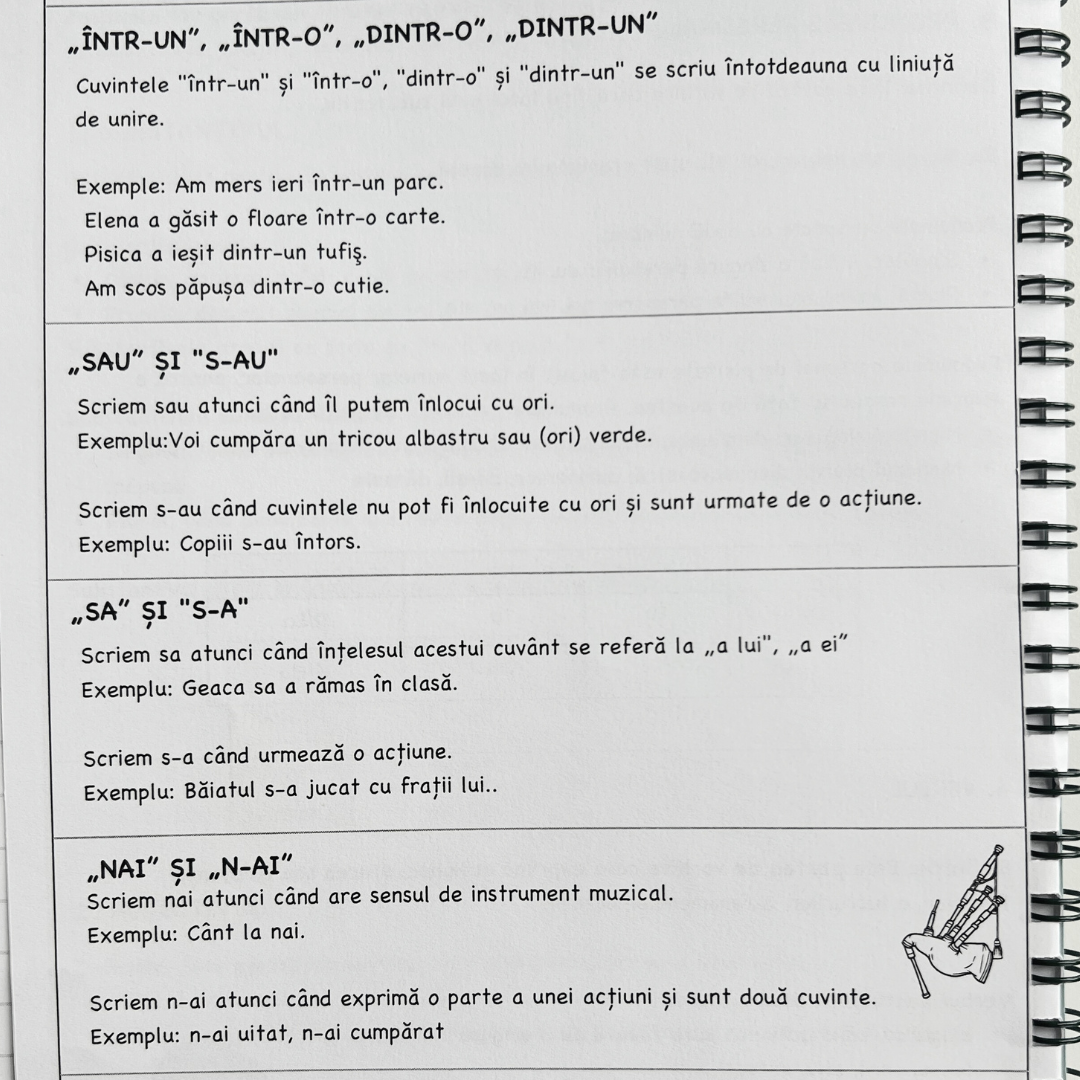 „ÎNTR-UN”, „ÎNTR-O”, „DINTR-O”, „DINTR-UN”
Cuvintele "într-un" și "într-o", "dintr-o" și "dintr-un" se scriu întotdeauna cu liniuță
de unire.
Exemple: Am mers ieri într-un parc.
Elena a găsit o floare într-o carte.
Pisica a ieșit dintr-un tufiş.
Am scos păpușa dintr-o cutie.
„SAU” ȘI "S-AU"
Scriem sau atunci când îl putem înlocui cu ori.
Exemplu:Voi cumpăra un tricou albastru sau (ori) verde.
Scriem s-au când cuvintele nu pot fi înlocuite cu ori și sunt urmate de o acțiune.
Exemplu: Copiii s-au întors.
„SA” ȘI "S-A"
Scriem sa atunci când înțelesul acestui cuvânt se referă la „a lui", „a ei”
Exemplu: Geaca sa a rămas în clasă.
Scriem s-a când urmează o acțiune.
Exemplu: Băiatul s-a jucat cu frații lui..
„NAI” ȘI „N-AI”
Scriem nai atunci când are sensul de instrument muzical.
Exemplu: Cânt la nai.
Scriem n-ai atunci când exprimă o parte a unei acțiuni și sunt două cuvinte.
Exemplu: n-ai uitat, n-ai cumpărat